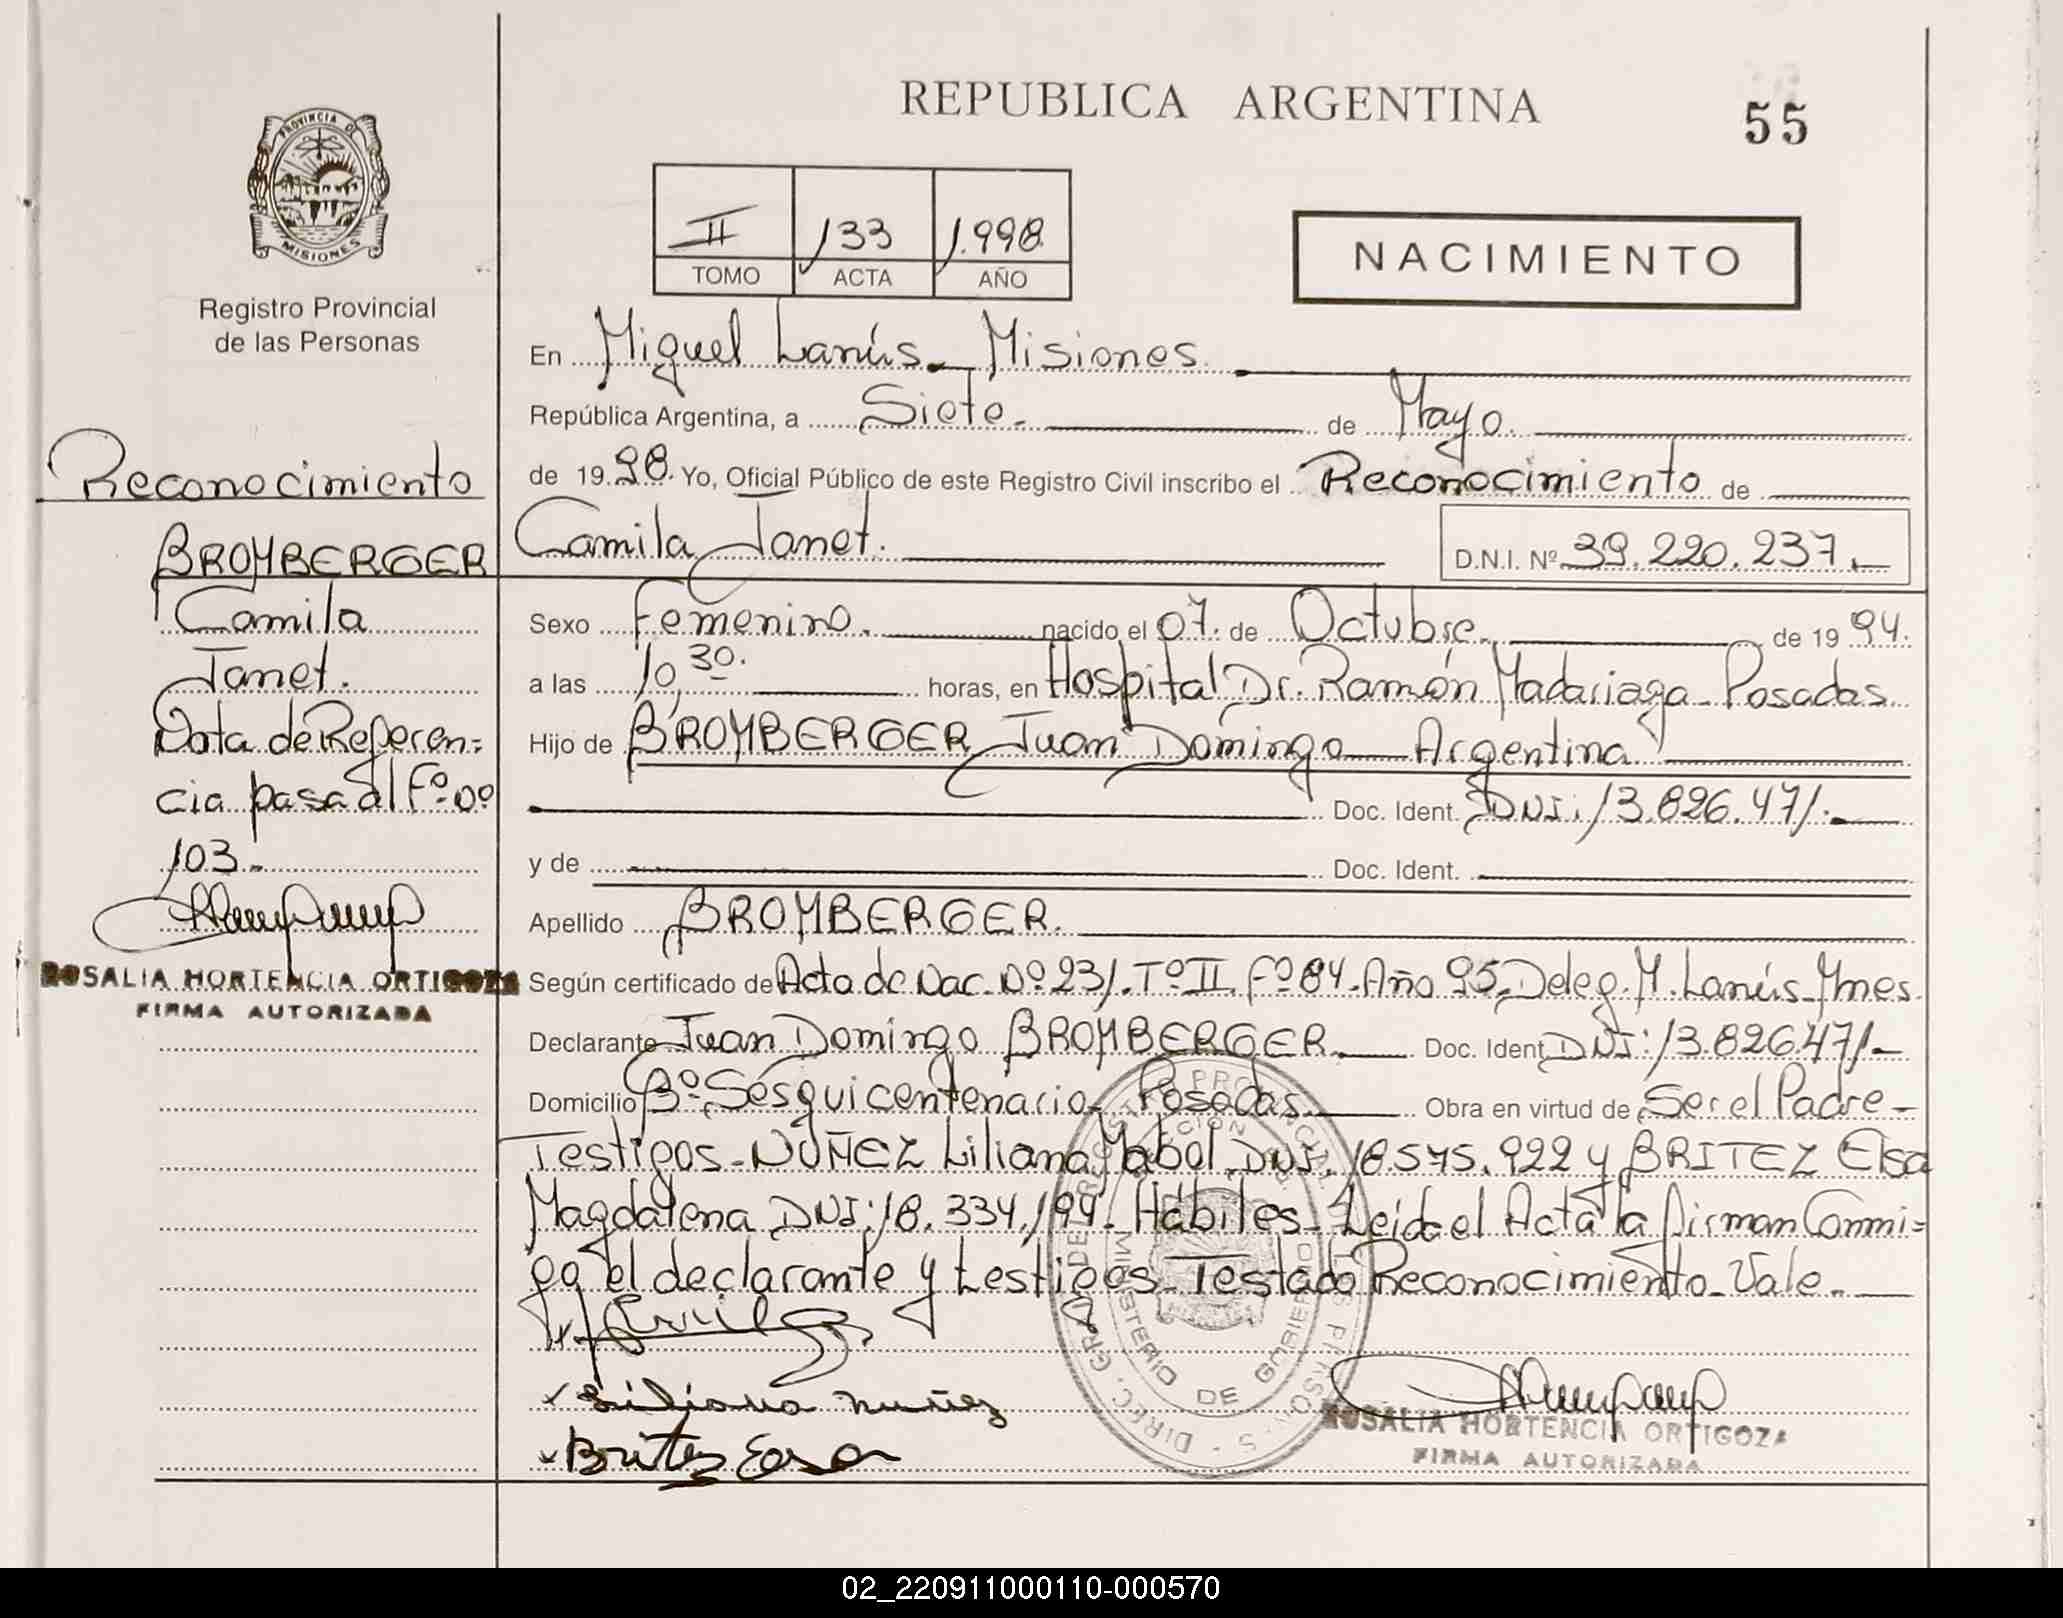 REPUBLICA ARGENTINA
55
PROVINCIA DE
MISIONES
Registro Provincial
de las Personas
II 133 1.998
TOMO ACTA AÑO
NACIMIENTO
En Miguel Lanús - Misiones.
República Argentina, a Siete. de Mayo.
de 19 98. Yo, Oficial Público de este Registro Civil inscribo el Reconocimiento de
Camila Janet. D.N.I. Nº 39.220.237.-
Sexo Femenino. nacido el 07. de Octubre. de 19 94.
a las 10,30. horas, en Hospital Dr. Ramón Madariaga - Posadas.
Hijo de BROMBERGER Juan Domingo - Argentina
Doc. Ident. DNI: 13.826.471.-
y de Doc. Ident.
Apellido BROMBERGER.
Según certificado de Acta de Nac. Nº 231. Tº II. Fº 84. Año 95. Deleg. M. Lanús - Mnes.
Declarante Juan Domingo BROMBERGER. Doc. Ident DNI: 13.826471.-
Domicilio Bº Sesquicentenario - Posadas. Obra en virtud de Ser el Padre -
Testigos - NÚÑEZ Liliana Mabel DNI. 18.575.922 y BRITEZ Elsa
Magdalena DNI: 18.334.194. Hábiles - Leída el Acta la firman Conmi=
go el declarante y testigos - Testado Reconocimiento - Vale. -
Liliana nuñez
Britez Elsa
ROSALIA HORTENCIA ORTIGOZA
FIRMA AUTORIZADA
MINISTERIO DE GOBIERNO
Reconocimiento
BROMBERGER
Camila
Janet.
Nota de Referen=
cia pasa al Fº Nº
103 -
ROSALIA HORTENCIA ORTIGOZA
FIRMA AUTORIZADA
02_220911000110-000570